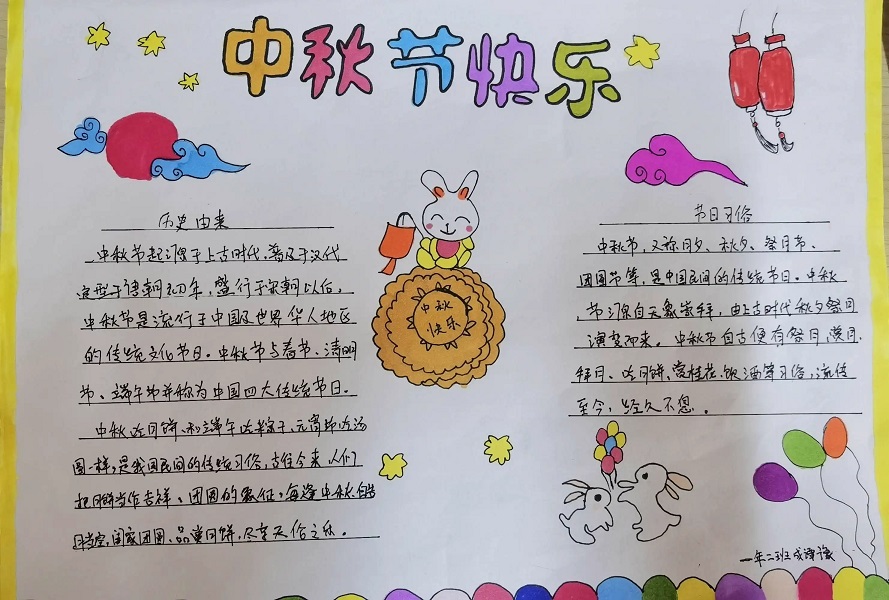 中秋节快乐
历史由来
中秋节起源于上古时代，普及于汉代
定型于唐朝初年，盛行于宋朝以后。
中秋节是流行于中国及世界华人地区
的传统文化节日。中秋节与春节、清明
节、端午节并称为中国四大传统节日。
中秋吃月饼、和端午吃粽子、元宵节吃汤
圆一样，是我国民间的传统习俗，古往今来人们
把月饼当作吉祥、团圆的象征，每逢中秋，皓
月当空，阖家团圆、品尝月饼，尽享天伦之乐。
中秋
快乐
节日习俗
中秋节，又称月夕、秋夕、祭月节、
团圆节等，是中国民间的传统节日。中秋
节源自天象崇拜，由上古时代秋夕祭月
演变而来。中秋节自古便有祭月、赏月、
拜月、吃月饼、赏桂花、饮酒等习俗，流传
至今，经久不息。
一年二班